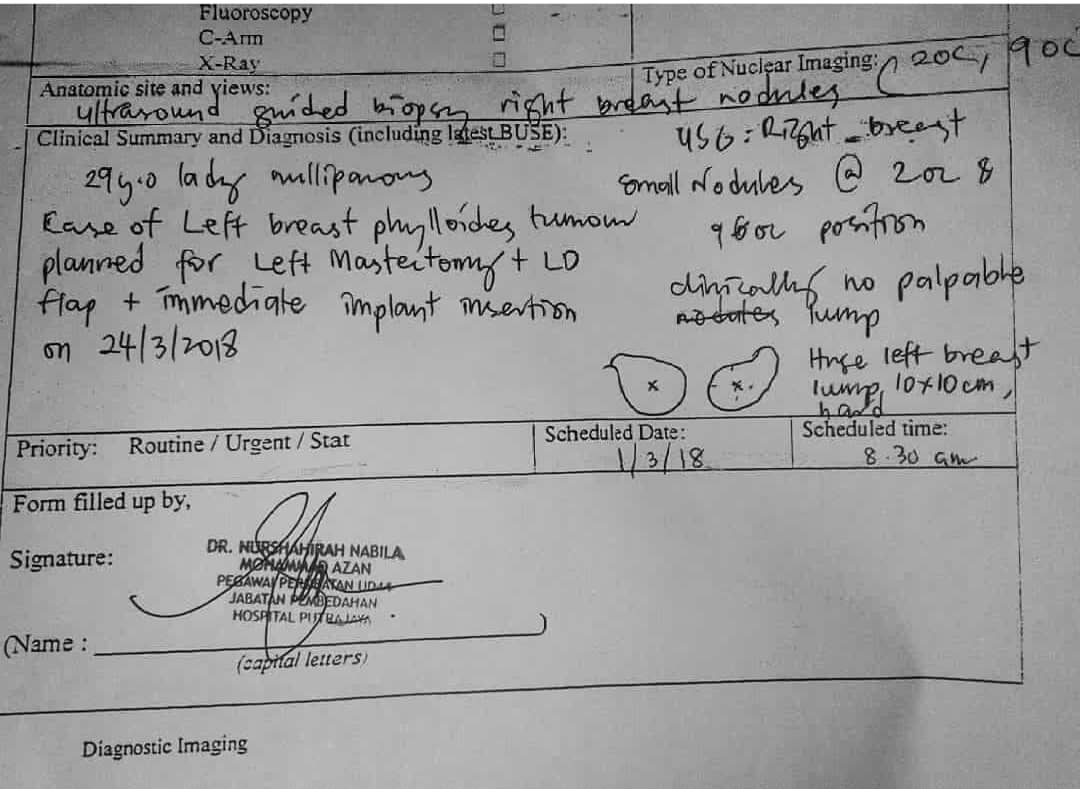 Fluoroscopy
C-Arm
X-Ray
Type of Nuclear Imaging:
Anatomic site and views:
ultrasound guided biopsy right breast nodules (2oc, 9oc
Clinical Summary and Diagnosis (including latest BUSE):
29 y.o lady nulliparous
Case of Left breast phylloides tumour
planned for Left Mastectomy + LD
flap + immediate implant insertion
on 24/3/2018
USG: Right breast
small Nodules @ 2oc &
position
clinically no palpable
nodules lump
Huge left breast
lump, 10x10cm,
hard
Priority: Routine / Urgent / Stat
Scheduled Date:
1/3/18
Scheduled time:
8.30 am
Form filled up by,
Signature:
DR. NURSHAHIRAH NABILA
MOHAMMAD AZAN
PEGAWAI PERUBATAN UD44
JABATAN PEMBEDAHAN
HOSPITAL PUTRAJAYA
(Name : )
(capital letters)
Diagnostic Imaging